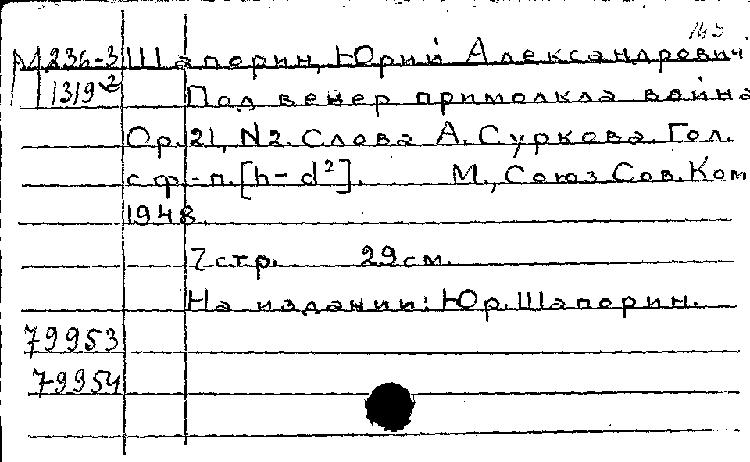 М 236-3 Шапорин, Юрий Александрович
1319 Под вечер примолкла война
Ор. 21, N 2. Слова А. Суркова. Гол.
с ф.-п. [h - d²]. М., Союз Сов. Ком
1948.
7 стр. 29 см.
На издании: Юр. Шапорин.
79953
79954